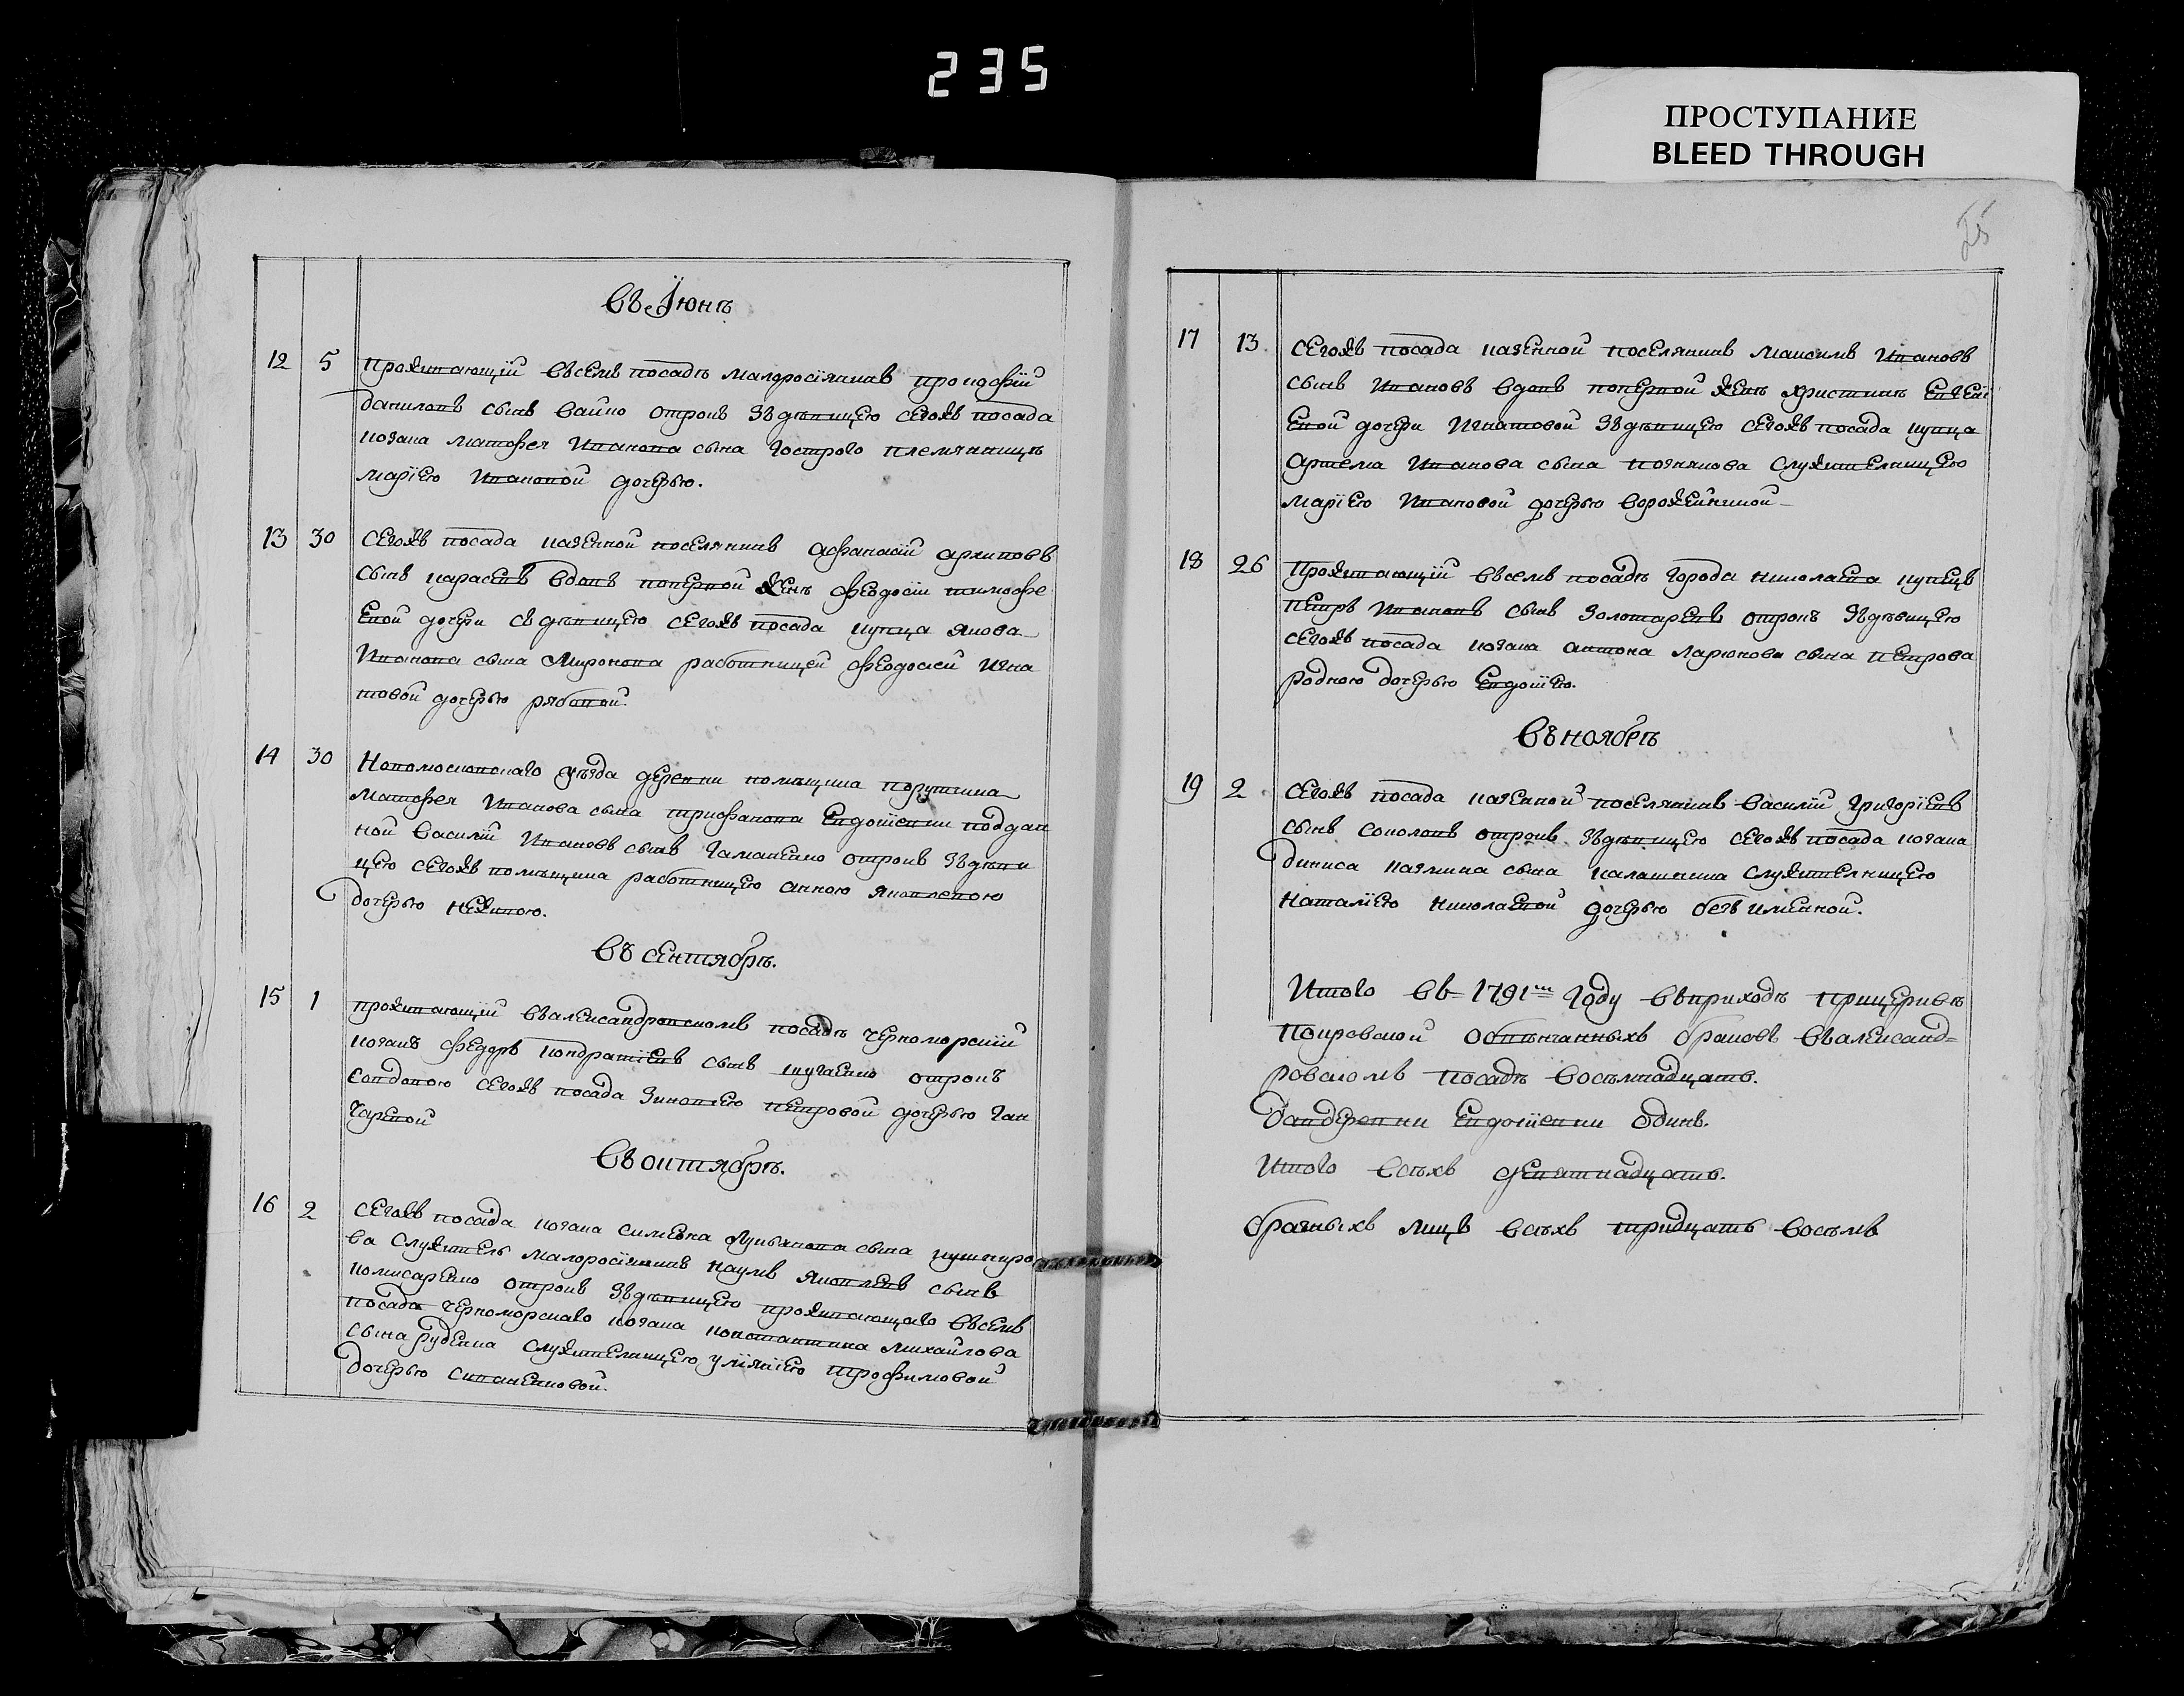 235
ПРОСТУПАНИЕ
BLEED THROUGH
25
Въ Їюнѣ
12 5 Проживающїй въсемъ посадѣ малоросїянинъ прокофїй
даниловъ сынъ вайно отрокъ зъдѣвицею сегожъ посада
козака матфея Иванова сына гострого племянницѣ
марїею Ивановой дочерью.
13 30 Сегожъ посада казенной поселянинъ афанасїй архиповъ
сынъ карасевъ вдовъ поперьвой женѣ феодосїи тимофе
евой дочери съ дѣвицею сегожъ посада купца якова
Иванова сына Миронова работницей феодосїей игна
товой дочерью рябовой.
14 30 Новомосковскаго уѣзда деревни помѣщика порутчика
матфея Иванова сына трифанова Евдокїевки поддан
ной василїй Ивановъ сынъ Гаманенко отрокъ зъдѣви
цею сегожъ помѣщика работницею анною яковлевою
дочерью неживою.
Въ сентябрѣ.
15 1 проживающїй въалександровскомъ посадѣ черноморскїй
козакъ федоръ кондратїевъ сынъ отрокъ
совдовою сегожъ посада зиновїею петровой дочерью ган
чаревой
Въ октябрѣ.
16 2 Сегожъ посада козака симеона Лукьянова сына кушниро
ва служитель малоросїянинъ наумъ яковлевъ сынъ
комисаренко отрокъ зъдѣвицею проживающаго въсемъ
посадѣ черноморскаго козака константина михайлова
сына руденка служителницею улїянїею трофимовой
дочерью степаненковой.
17 13 Сегожъ посада казенной поселянинъ максимъ Ивановъ
сынъ Ивановъ вдовъ поперьвой женѣ христинѣ Евгенї
евой дочери Игнатовой зъдѣвицею сегожъ посада купца
артема Иванова сына познякова служителницею
марїею Ивановой дочерью ворожейкиной
18 26 Проживающїй въсемъ посадѣ города николаева купецъ
петръ Ивановъ сынъ золотаревъ отрокъ зъдѣвицею
сегожъ посада козака антона ларїонова сына петрова
родною дочерью Евдокїею.
Въ ноябрѣ
19 2 Сегожъ посада казенной поселянинъ василїй григорїевъ
сынъ соколовъ отрокъ зъдѣвицею сегожъ посада козака
дениса казмина сына калашника служителницею
наталїею николаевой дочерью безъименной.
Итого въ 1791мъ году въприходѣ прицерквѣ
покровской обвѣнчанныхъ браковъ въалександ=
ровскомъ посадѣ восѣмнадцать.
въдеревни Евдокїевки одинъ.
Итого всѣхъ девятнадцать.
брачныхъ лицъ всѣхъ тридцать восѣмъ